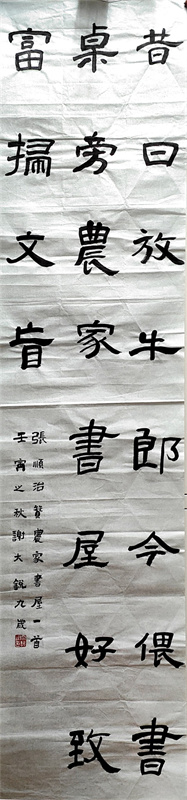 昔日放牛郎今偎書
桌旁農家書屋好致
富掃文盲
張順治贊農家書屋一首
壬寅之秋謝大銳九歲